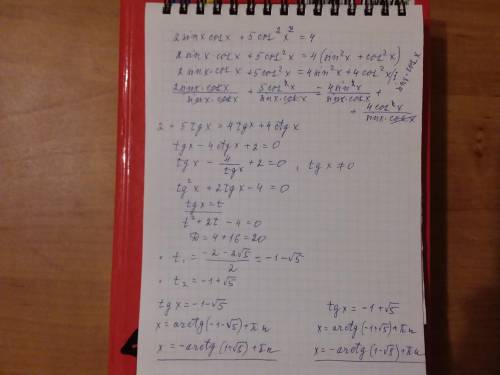 2 sinx cosx + 5 cos²x = 4
2 sinx cosx + 5cos²x = 4(sin²x + cos²x)
2 sinx·cosx + 5cos²x = 4sin²x + 4cos²x /: sinx·cosx
2sinx·cosx/sinx·cosx + 5cos²x/sinx·cosx = 4sin²x/sinx·cosx +
+ 4cos²x/sinx·cosx
2 + 5tgx = 4tgx + 4ctgx
tgx - 4ctgx + 2 = 0
tgx - 4/tgx + 2 = 0, tgx ≠ 0
tg²x + 2tgx - 4 = 0
tgx = t
t² + 2t - 4 = 0
D = 4 + 16 = 20
t₁ = (-2 - 2√5)/2 = -1-√5
t₂ = -1+√5
tgx = -1-√5
x = arctg(-1-√5) + πn
x = -arctg(1+√5) + πn
tgx = -1+√5
x = arctg(-1+√5) + πn
x = -arctg(1-√5) + πn